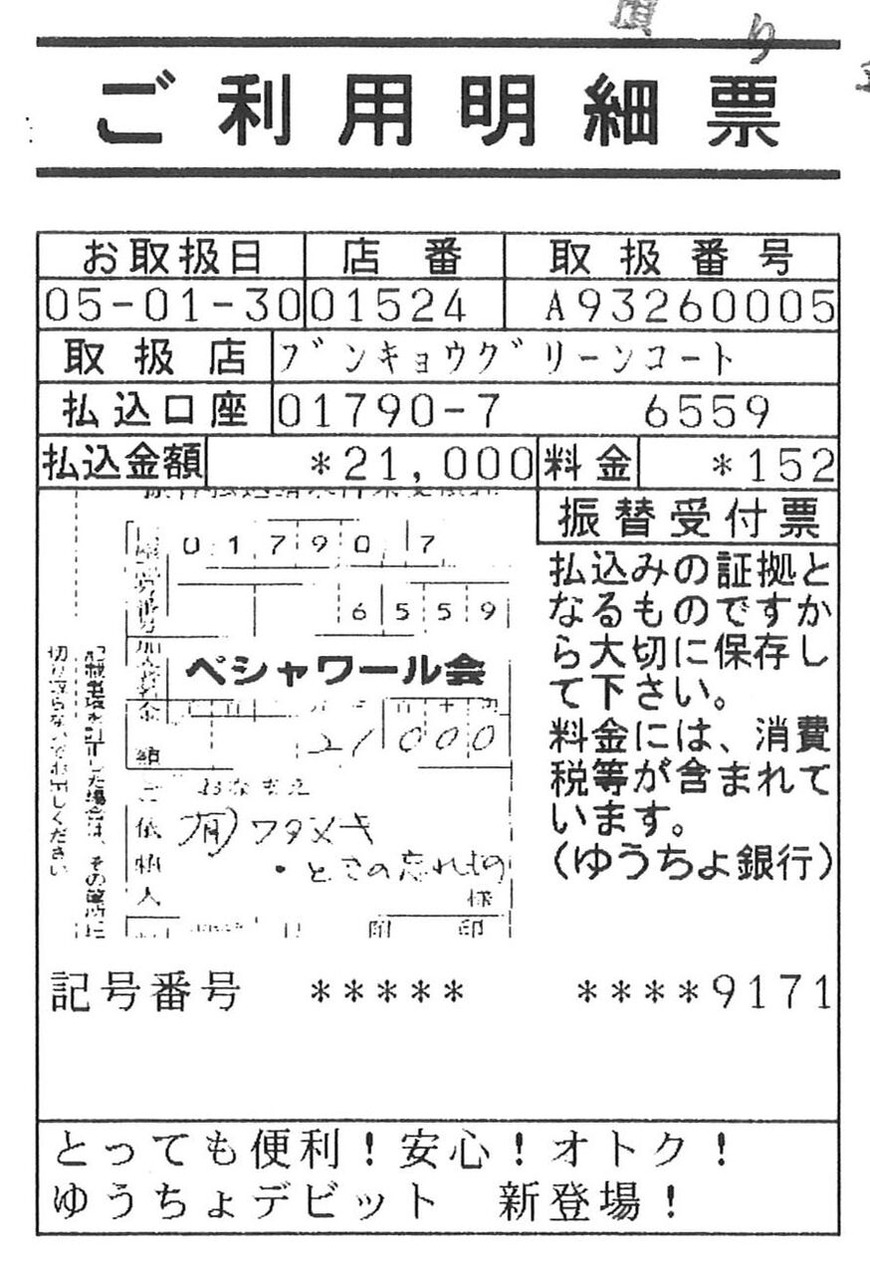 ご利用明細票
お取扱日 店番 取扱番号
05-01-30 01524 A93260005
取扱店 ブンキョウグリーンコート
払込口座 01790-7 6559
払込金額 *21,000 料金 *152
振替受付票
払込みの証拠と
なるものですか
ら大切に保存し
て下さい。
料金には、消費
税等が含まれて
います。
(ゆうちょ銀行)
口座記号番号 01790 7
6559
加入者名 ペシャワール会
金額 21000
おなまえ
ご依頼人 (有)ワタメキ
・とこの忘れもの
様
印
記載事項を訂正した場合は、その箇所に
切り取らないでお出しください
記号番号 ***** ****9171
とっても便利!安心!オトク!
ゆうちょデビット 新登場!